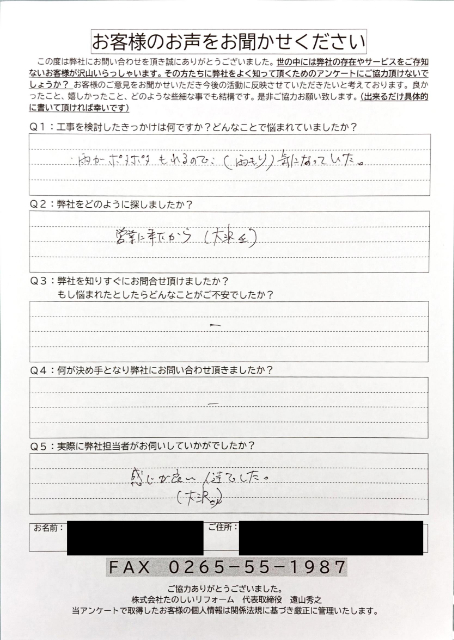 お客様のお声をお聞かせください
この度は弊社にお問い合わせを頂き誠にありがとうございました。世の中には弊社の存在やサービスをご存知
ないお客様が沢山いらっしゃいます。その方たちに弊社をよく知って頂くためのアンケートにご協力頂けないで
しょうか？ お客様のご意見をお聞かせいただき今後の活動に反映させていただきたいと考えております。良か
ったこと、嬉しかったこと、どのような些細な事でも結構です。是非ご協力お願い致します。（出来るだけ具体的
に書いて頂ければ幸いです）
Q1：工事を検討したきっかけは何ですか？どんなことで悩まれていましたか？
雨がポタポタもれるので、（雨もり）気になっていた。
Q2：弊社をどのように探しましたか？
営業に来たから（大沢
Q3：弊社を知りすぐにお問合せ頂けましたか？
もし悩まれたとしたらどんなことがご不安でしたか？
ー
Q4：何が決め手となり弊社にお問い合わせ頂きましたか？
ー
Q5：実際に弊社担当者がお伺いしていかがでしたか？
感じが良い人達でした。
（大沢
お名前：
ご住所：
FAX 0265-55-1987
ご協力ありがとうございました。
株式会社たのしいリフォーム 代表取締役 遠山秀之
当アンケートで取得したお客様の個人情報は関係法規に基づき厳正に管理いたします。